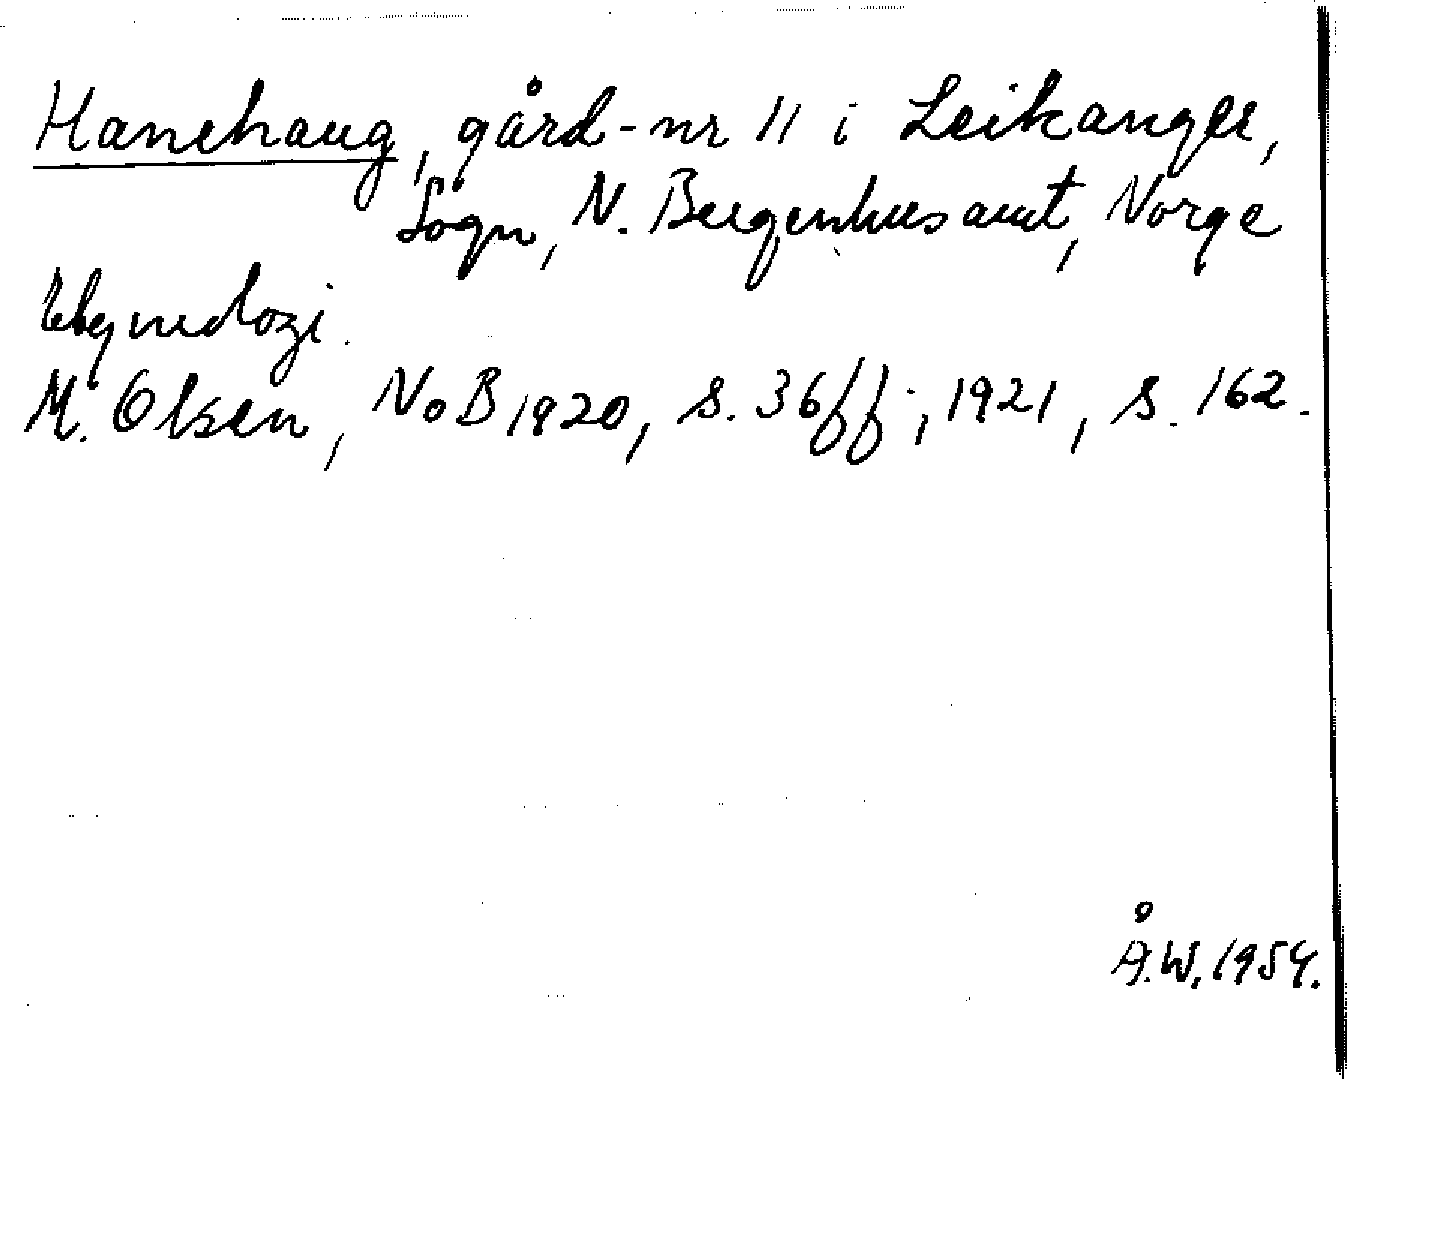 Hanehaug, gård-nr 11 i Leikanger,
Sogn, N. Bergenhus amt, Norge
Etymologi.
M. Olsen, NoB 1920, s. 36ff; 1921, s. 162.
Å.W. 1954.